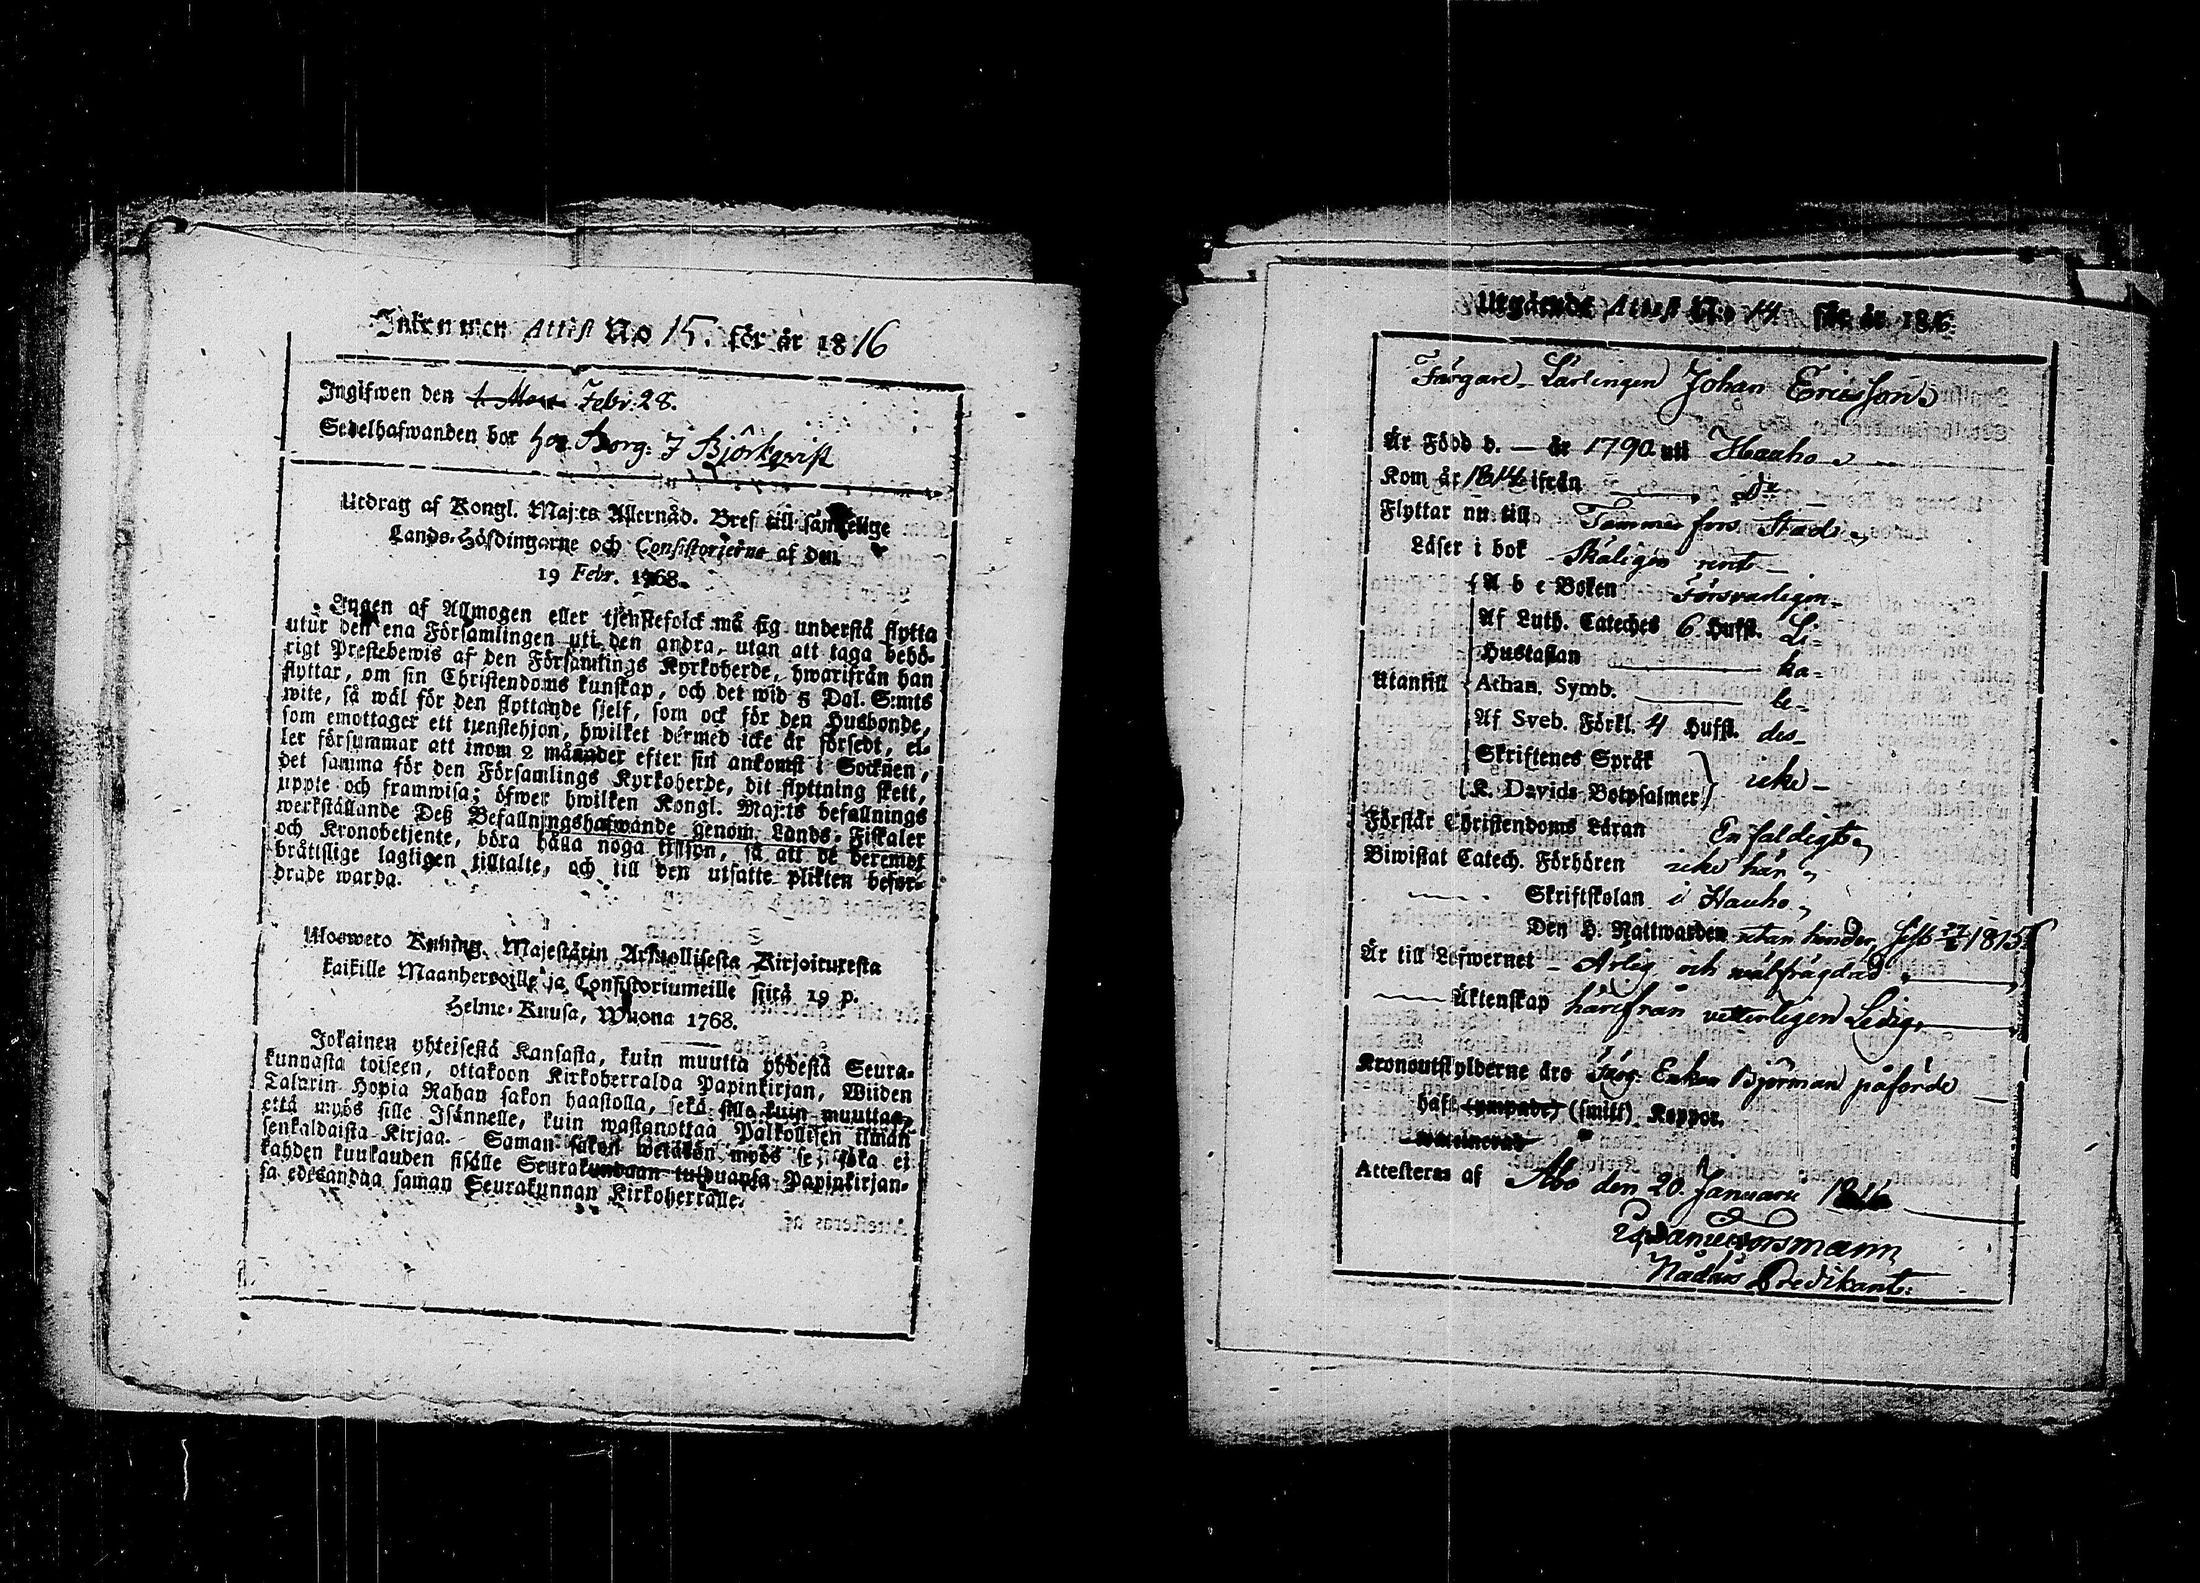 Inkommen Attest No 15. för år 1816
Ingifwen den 1 Mart Febr: 28.
Sedelhafwanden bor hos Borg: J Björkqvist
Utdrag af Kongl. Maj:ts Allernåd. Bref till samtelige
Lands-Höfdingarne och Consistorierne af den
19 Febr. 1768.
Ingen af Allmogen eller tjenstefolck må sig understå flytta
utur den ena Församlingen uti den andra, utan att taga behö-
rigt Prestebewis af den Församlings Kyrkoherde, hwarifrån han
flyttar, om sin Christendoms kunskap, och det wid 5 Dal. S:mts
wite, så wäl för den flyttande sjelf, som ock för den Husbonde,
som emottager ett tjenstehjon, hwilket dermed icke är försedt, el-
ler försummar att inom 2 månader efter sin ankomst i Socknen,
det samma för den Församlings Kyrkoherde, dit flyttning skett,
uppte och framwisa; öfwer hwilken Kongl. Maj:ts befallnings
werkställande Deß Befallningshafwande genom Lands-Fiskaler
och Kronobetjente, böra hålla noga tillsyn, så att de deremot
bråttslige lagligen tilltalte, och till den utsatte plikten befor-
drade warda.
Ulosweto Kuning. Majestätin Armollisesta Kirjoituxesta
kaikille Maanherroille ja Consistoriumeille siitä 19 p.
Helme-Kuusa, Wuona 1768.
Jokainen yhteisestä Kansasta, kuin muutta yhdestä Seura-
kunnasta toiseen, ottakoon Kirkoherralda Papinkirjan, Wiiden
Talarin Hopia Rahan sakon haastolla, sekä sille kuin muuttaa,
että myös sille Isännelle, kuin wastanottaa Palkollisen ilman
senkaldaista Kirjaa. Saman sakon wetäkön myös se, joka ei
kahden kuukauden sisälle Seurakundaan tulduansa Papinkirjan-
sa edesandaa saman Seurakunnan Kirkoherralle.
Utgående Attest N:o 14. för år 1816.
Färgare Lärlingen Johan Ericsson
Är Född d. — år 1790. uti Hauho
Kom år 1814 ifrån — D:o
Flyttar nu till Tammerfors Stad
Läser i bok Skäligen rent
A b c Boken Försvarligen
Af Luth. Cateches 6 Hufst. Li-
Hustaflan ka-
Utantill Athan. Symb. le-
Af Sveb. Förkl. 4 Hufst. des
Skriftenes Språk
K. Davids Botpsalmer icke
Förstår Christendoms Läran Enfaldigt
Biwistat Catech. Förhören icke här
Skriftskolan i Hauho
Den H. Nattwarden utan hinder, sist 1815
Är till Lefwernet Ärlig och välfrägdad
Äktenskap härifrån vetterligen Ledig
Kronoutskylderne äro Färg: Enkan Björman påförde
haft (ympade) (smitt) Koppor.
Attesteras af Åbo den 20. Januarii 1816
Nådårs Predikant.